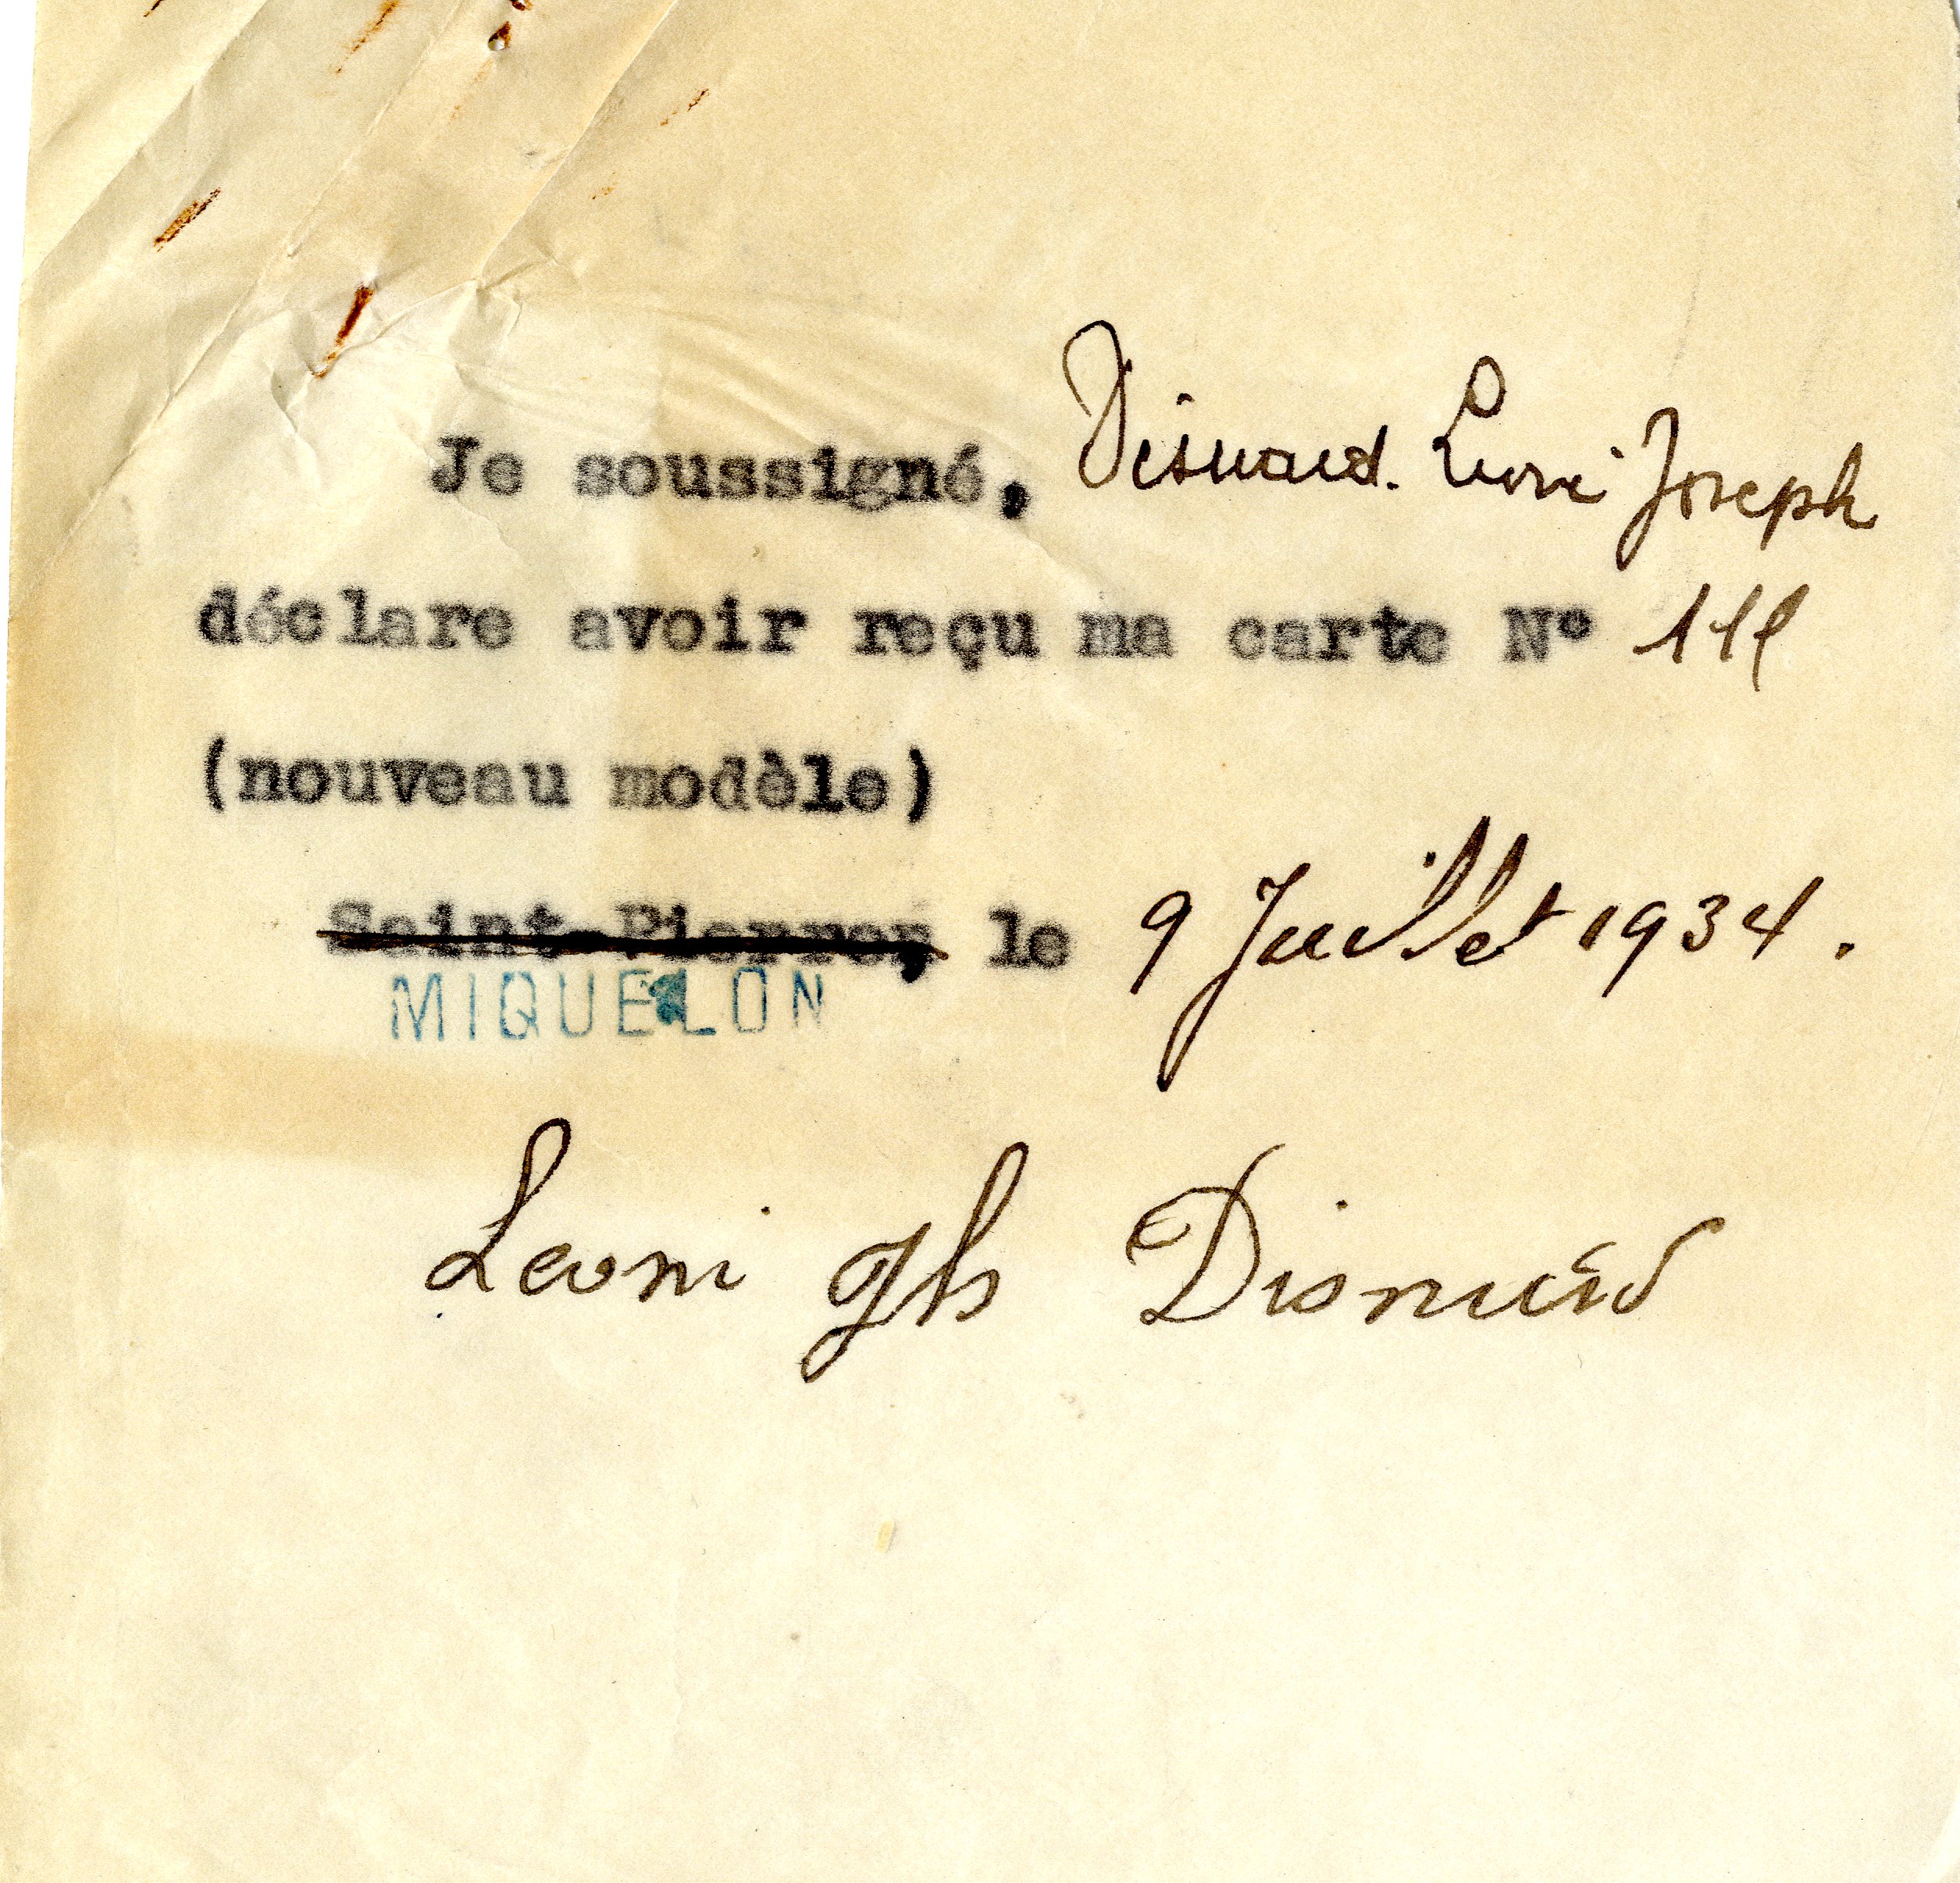 Je soussigné, Disnard. Leoni Joseph
déclare avoir reçu ma carte N°
(nouveau modèle)
Saint-Pierre, le 9 Juillet 1934.
MIQUELON
Leoni Jh